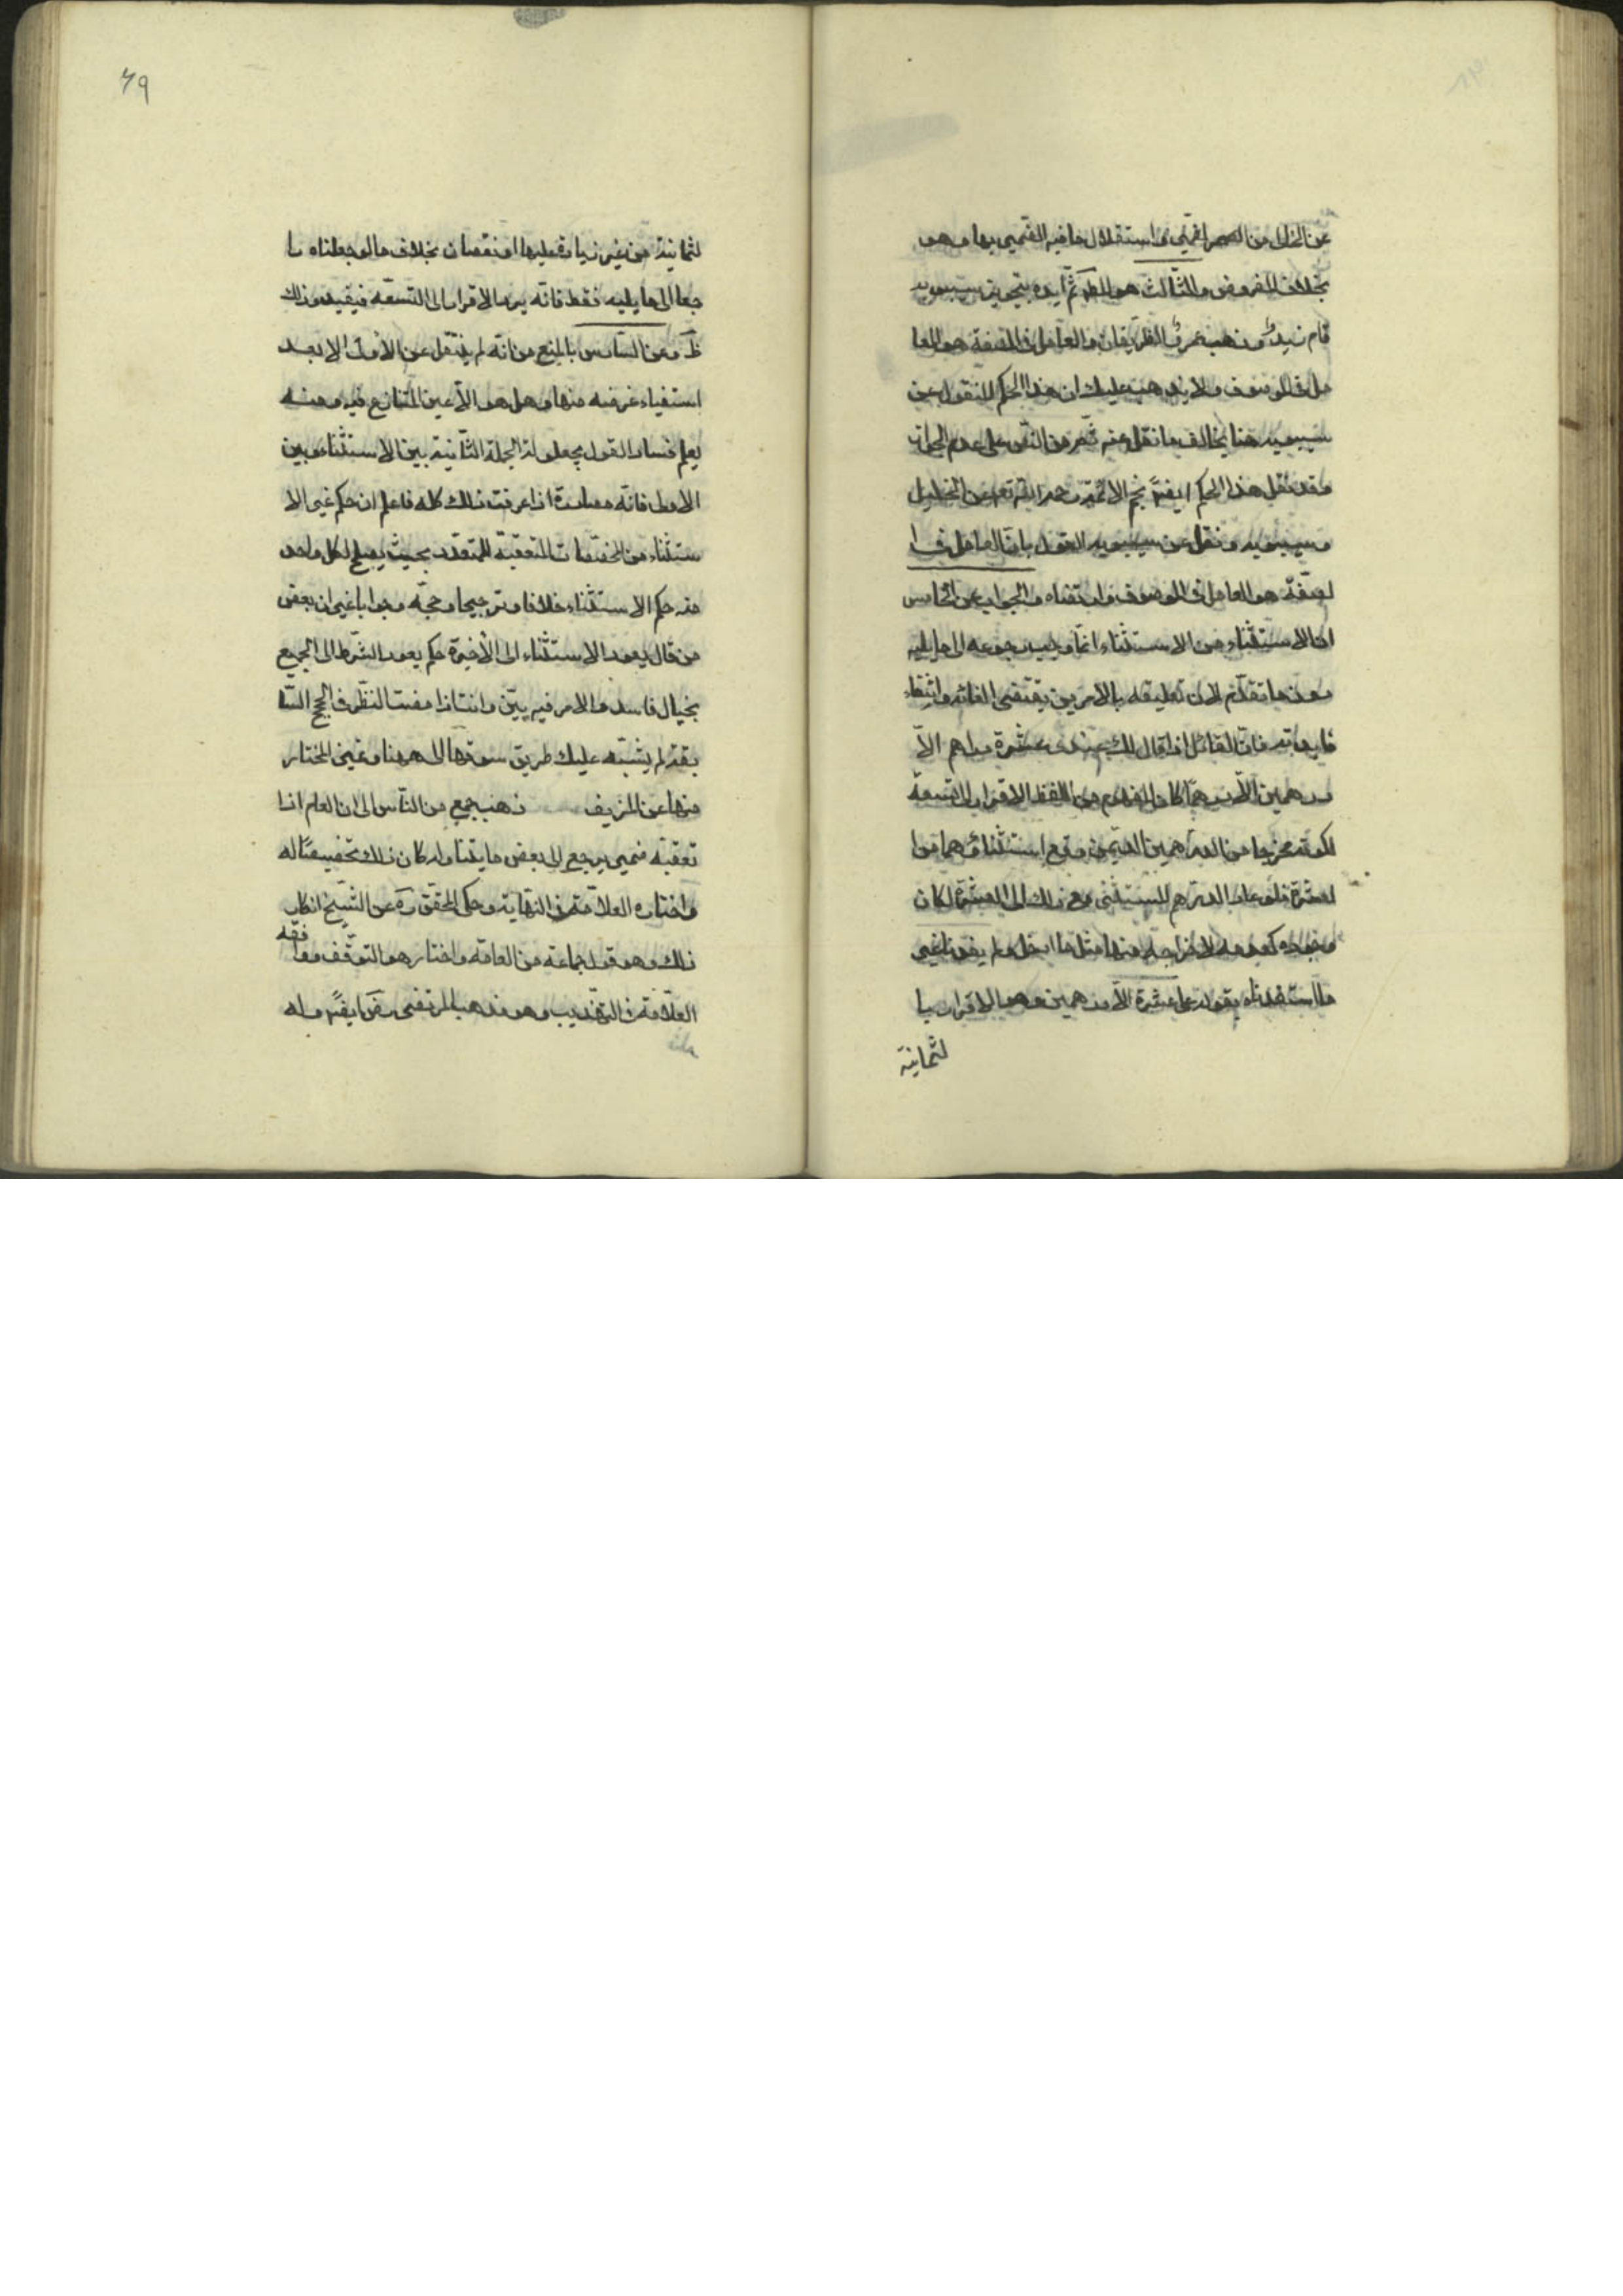 عن الخلل من الضمير استقلال ما فيه الضمير بها وهو
بخلاف المفروض والثالث هو المط ثم أيده بتجويز سيبويه
قام زيد وذهب عمرو الظريفان والعامل في الصفة هو العا
مل في الموصوف ولا يذهب عليك ان هذا الحكم المنقول عن
سيبويه هنا يخالف ما نقل عنه ثم من النص على عدم الجواز
وقد نقل هذا الحكم ايضا نجم الائمة رحمه الله تعم عن الخليل
وسيبويه ونقل عن سيبويه القول بان العامل في ا
لصفة هو العامل في الموصوف وارتضاه والجواب عن الخامس
ان الاستثناء من الاستثناء انما وجب رجوعه الى ما يليه
دون ما تقدم لان تعليقه بالامرين يقتضي الغائه وانتفاء
فايدته فان القائل اذا قال لك عندى عشرة دراهم الا
درهمين الا درهما كان المفهوم من اللفظ الاقرار بالتسعة
لكونه مخرجا من الدرهمين الذين وقع استثنائهما من ا
لعشرة فلو عاد الدرهم المستثنى مع ذلك الى العشرة لكان
وجوده كعدمه لاخراجه منها مثل ما ادخل ولم يفدنا غير
ما استفدناه بقوله على عشرة الا درهمين وهو الاقرار با
لثمانية
٦٩
لثمانية من غير زيادة عليها او نقصان بخلاف ما لو جعلناه را
جعا الى ما يليه فقط فانه يرد الاقرار الى التسعة فيفيد وذلك
ظ وعن السادس بالمنع من انه لم ينتقل عن الاولى الا بعد
استيفاء غرضه منها وهل هو الا عين المتنازع فيه ومنه
يعلم فساد القول بحيلولة الجملة الثانية بين الاستثناء وبين
الاولى فانه مصادرة اذا عرفت ذلك كله فاعلم ان حكم غير الا
ستثناء من المخصصات المتعقبة للمتعدد بحيث يصلح لكل واحد
منه حكم الاستثناء خلافا وترجيحا وحجة وجوابا غير ان بعض
من قال بعود الاستثناء الى الاخيرة حكم بعود الشرط الى الجميع
بخيال فاسد والامر فيه بين وانت اذا امعنت النظر في الحجج السا
بقة لم يشتبه عليك طريق سوقها الى هيهنا وتميز المختار
منها عن المزيف ذهب جمع من الناس الى ان العام اذا
تعقبه ضمير يرجع الى بعض ما يتناوله كان ذلك تخصيصا له
واختاره العلامة في النهاية وحكى المحقق ره عن الشيخ انكار
ذلك وهو قول جماعة من العامة واختار هو التوقف ووافقه
العلامة في التهذيب وهو مذهب المرتضى رض ايضا وله